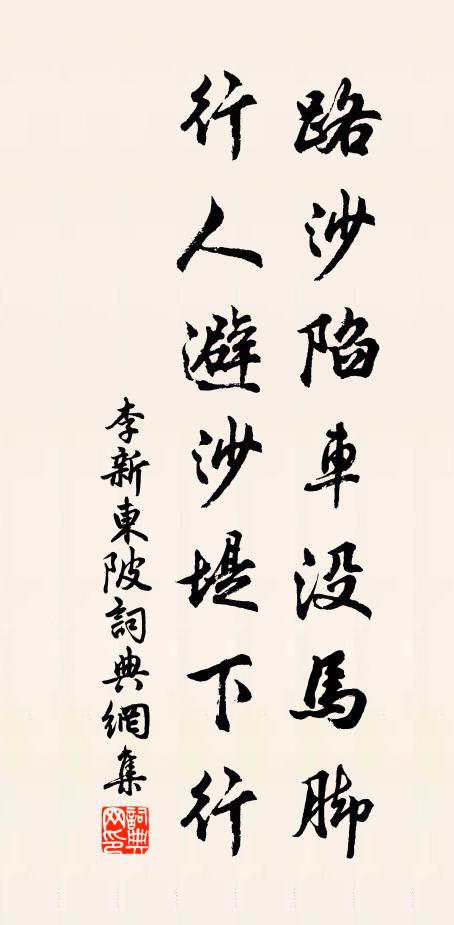 路沙陷車没馬脚
行人避沙堤下行
李新東陂詞典網集
詞典網印